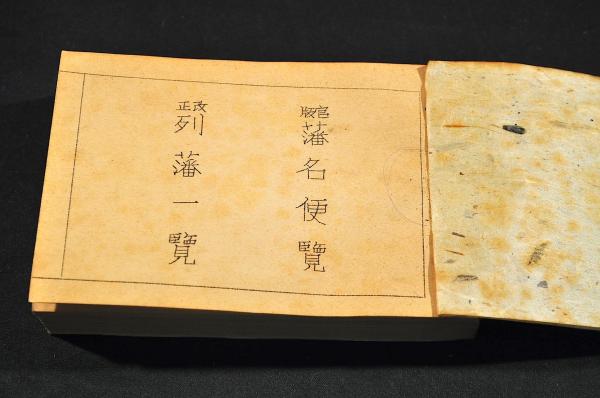 官版藩名便覧
改正列藩一覽